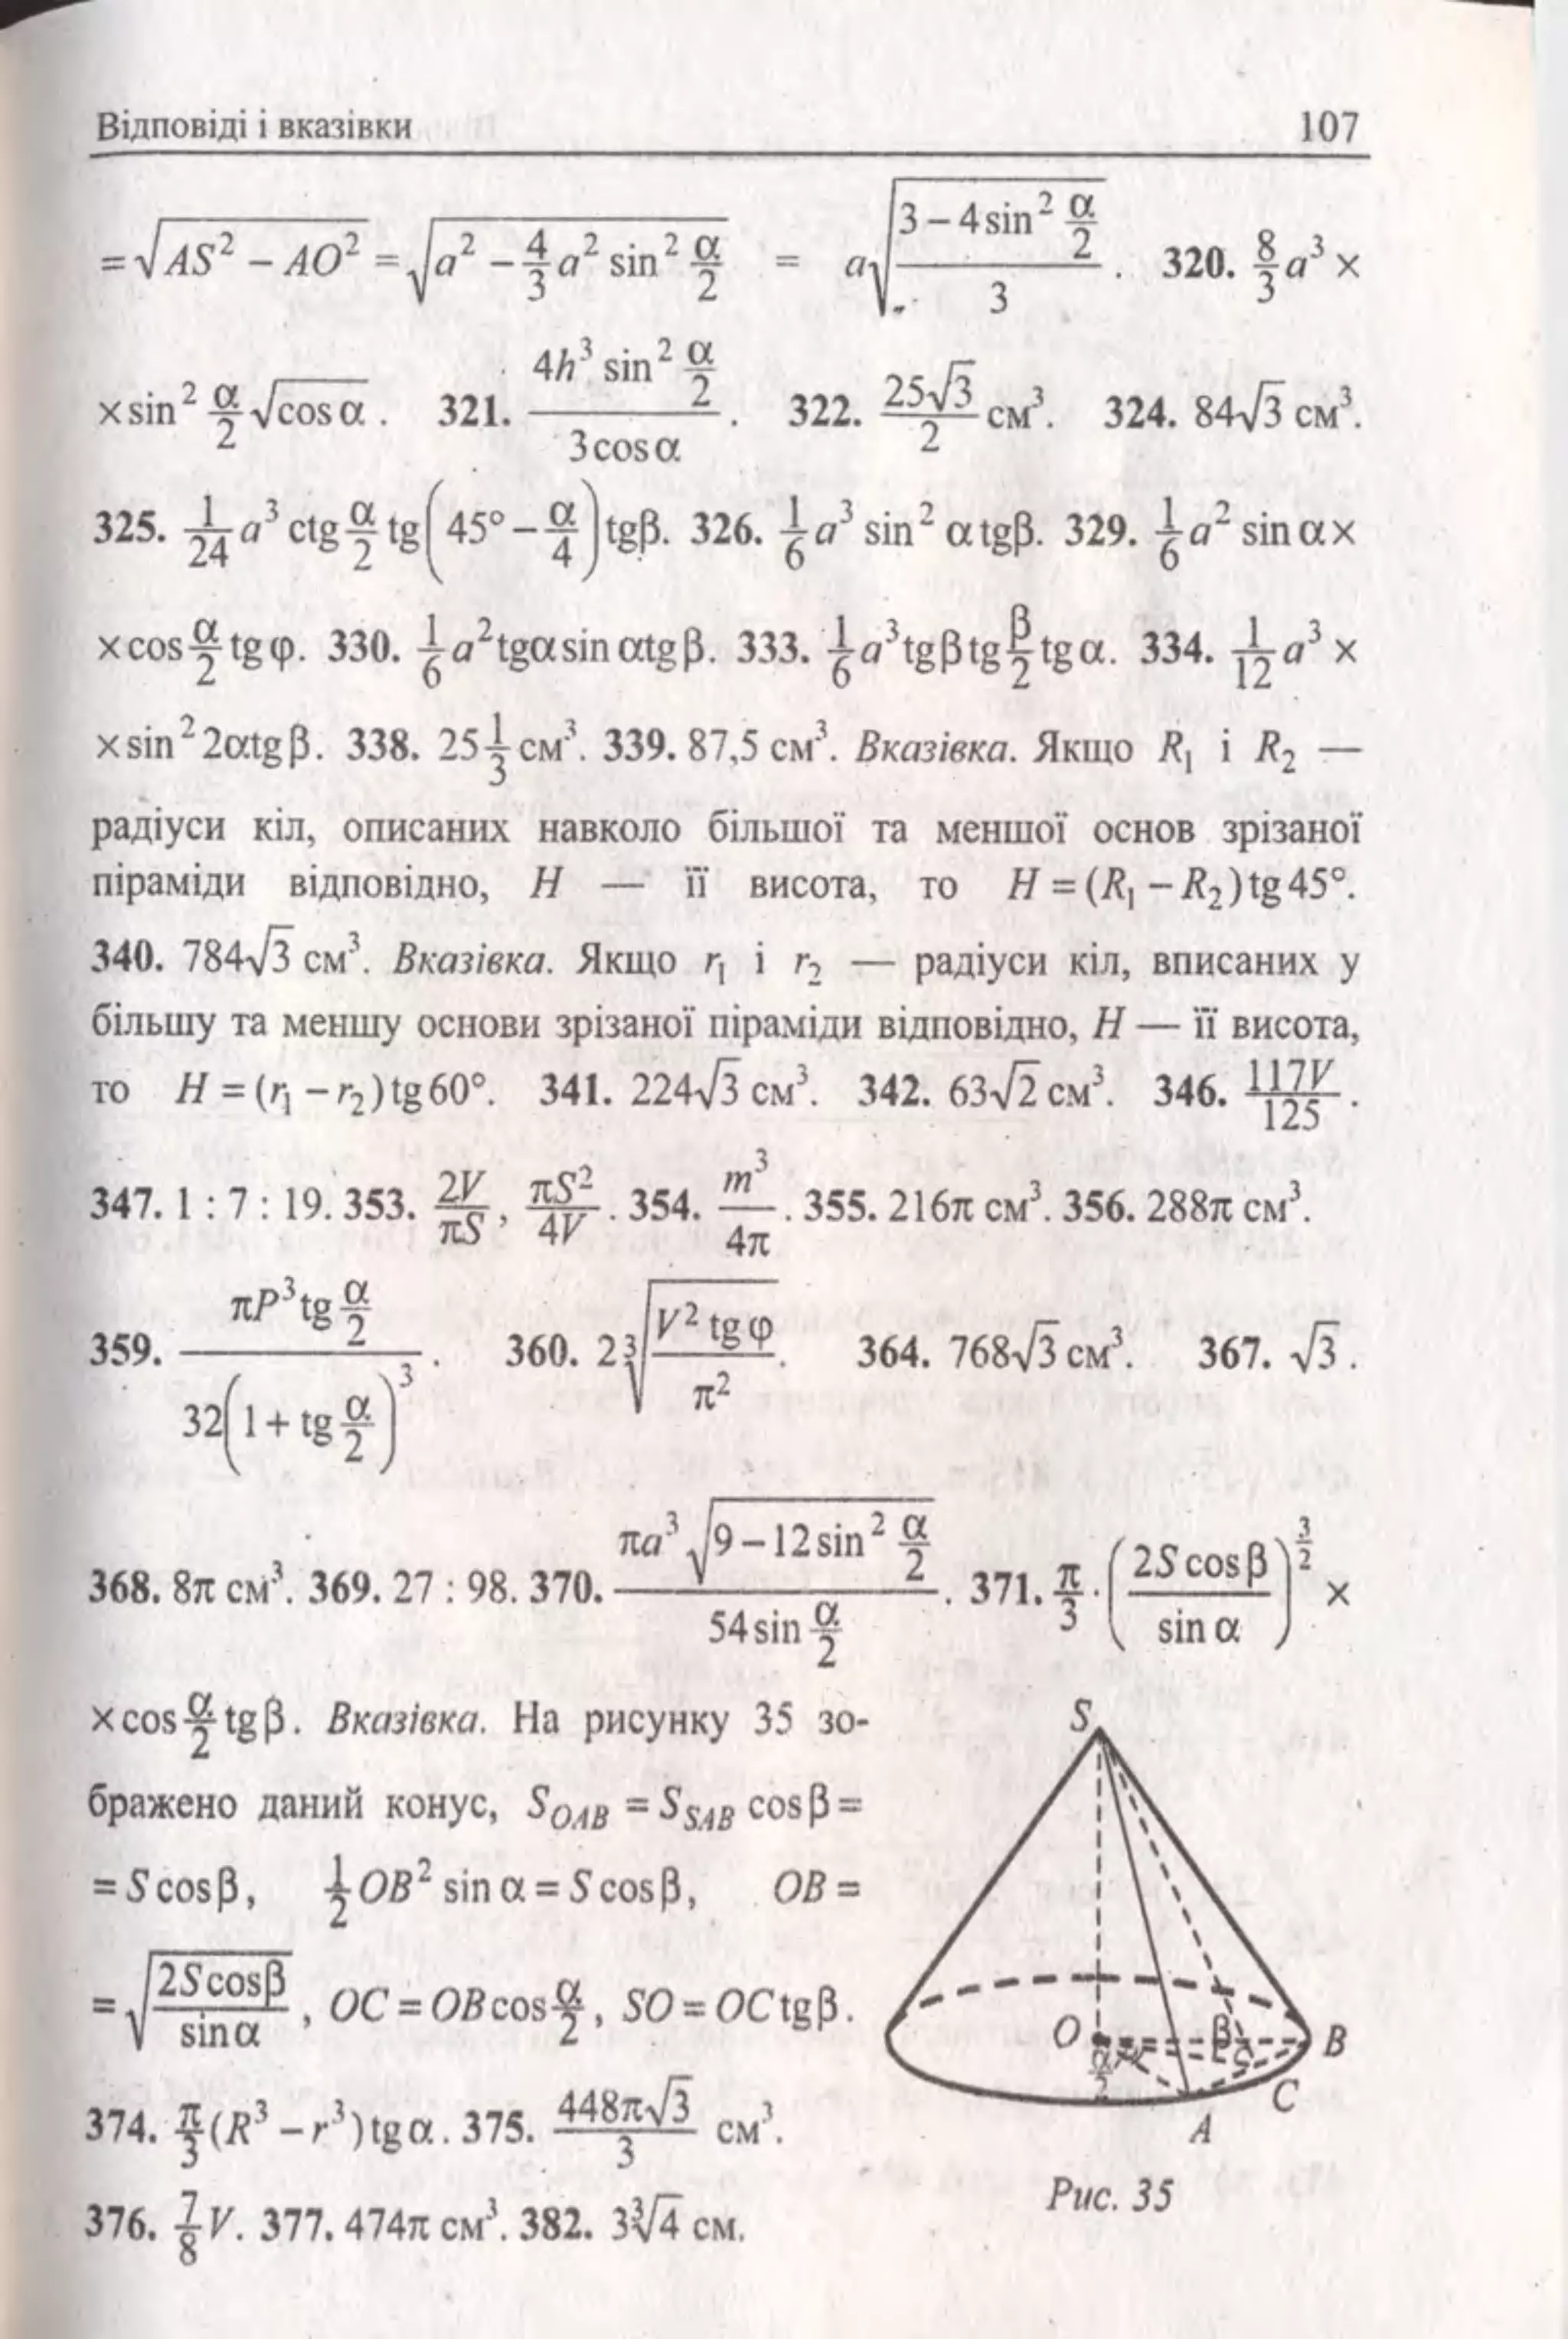 Відповіді і вказівки 107
= √(AS² − AO²) = √(a² − 4/3 a² sin² α/2) = a√((3 − 4sin² α/2)/3). 320. 8/3 a³ ×
× sin² α/2 √(cos α). 321. (4h³ sin² α/2)/(3cos α). 322. 25√3/2 см³. 324. 84√3 см³.
325. 1/24 a³ ctg α/2 tg(45° − α/4) tgβ. 326. 1/6 a³ sin² α tgβ. 329. 1/6 a² sin α ×
× cos α/2 tg φ. 330. 1/6 a² tgα sin α tg β. 333. 1/6 a³ tgβ tg β/2 tg α. 334. 1/12 a³ ×
× sin² 2α tg β. 338. 25 1/3 см³. 339. 87,5 см³. Вказівка. Якщо R₁ і R₂ —
радіуси кіл, описаних навколо більшої та меншої основ зрізаної
піраміди відповідно, H — її висота, то H = (R₁ − R₂) tg 45°.
340. 784√3 см³. Вказівка. Якщо r₁ і r₂ — радіуси кіл, вписаних у
більшу та меншу основи зрізаної піраміди відповідно, H — її висота,
то H = (r₁ − r₂) tg 60°. 341. 224√3 см³. 342. 63√2 см³. 346. 117V/125.
347. 1 : 7 : 19. 353. 2V/πS, πS²/4V. 354. m³/4π. 355. 216π см³. 356. 288π см³.
359. (πP³ tg α/2)/(32(1 + tg α/2)³). 360. 2∛(V² tg φ/π²). 364. 768√3 см³. 367. √3.
368. 8π см³. 369. 27 : 98. 370. (πa³ √(9 − 12sin² α/2))/(54 sin α/2). 371. π/3 · (2S cos β/sin α)^(3/2) ×
× cos α/2 tg β. Вказівка. На рисунку 35 зо-
бражено даний конус, S_OAB = S_SAB cos β =
= S cos β, 1/2 OB² sin α = S cos β, OB =
= √(2S cosβ/sin α), OC = OB cos α/2, SO = OC tg β.
374. π/3 (R³ − r³) tg α. 375. 448π√3/3 см³.
376. 7/8 V. 377. 474π см³. 382. 3∛4 см.
S
O β B
α/2
C
A
Рис. 35